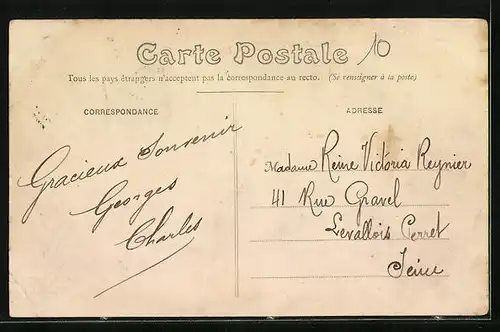 Carte Postale
10
Tous les pays étrangers n'acceptent pas la correspondance au recto. (Se renseigner à la poste)
CORRESPONDANCE
Gracieux Souvenir
Georges
Charles
ADRESSE
Madame Reine Victoria Reynier
41 Rue Gravel
Levallois Perret
Seine